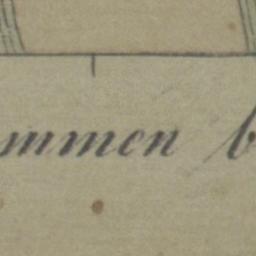 mmen b